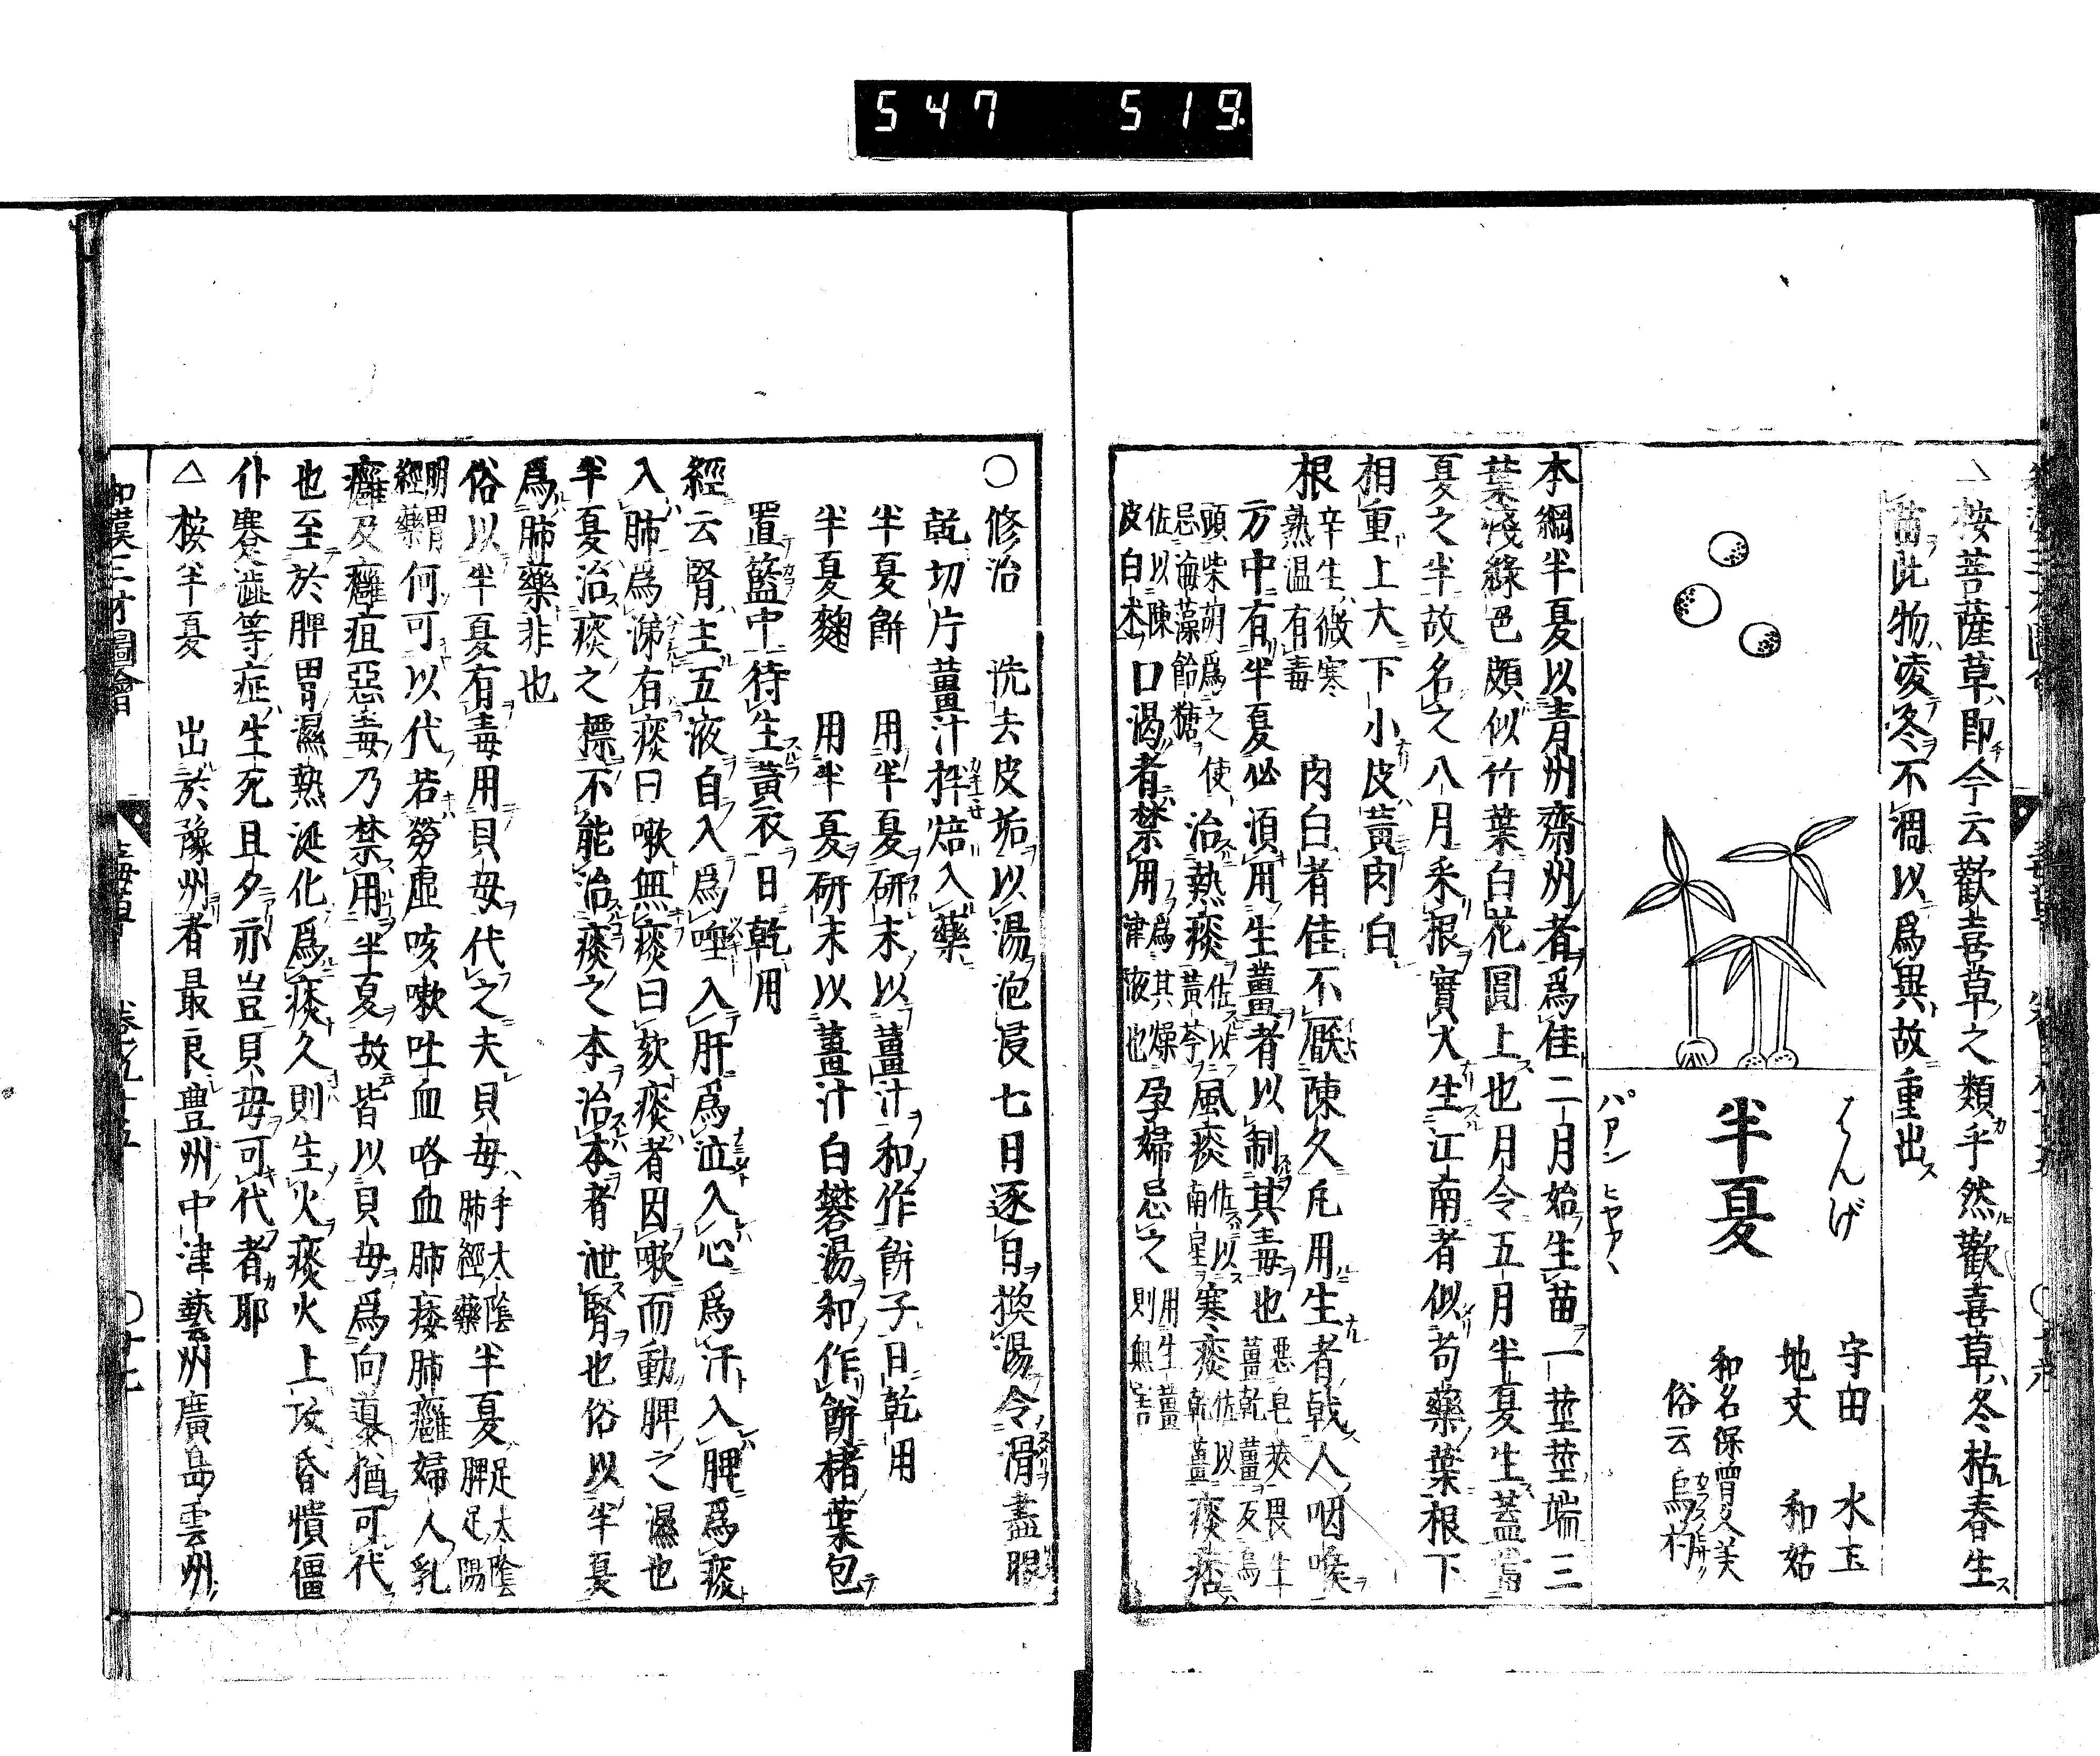 547 519
△按菩薩草即今云歡喜草之類乎然歡喜草冬枯春生
苗此物凌冬不凋以爲異故重出
はんげ
半夏
パアンヒヤアヽ
守田 水玉
地文 和姑
和名保曾久美
俗云烏柄杓
本綱半夏以青州齋州者爲佳二月始生苗一莖莖端三
葉淺綠色頗似竹葉白花圓上也月令五月半夏生蓋當
夏之半故名之八月采根實大生江南者似芍藥葉根下
相重上大下小皮黃肉白
根 辛生微寒
熟温有毒
肉白者佳不厭陳久凡用生者戟人咽喉
方中有半夏必須用生薑者以制其毒也
惡皂莢畏生
薑乾薑反烏
頭柴胡爲之使
忌海藻飴糖
治熱痰
佐以
黃芩
風痰
佐以
南星
寒痰
佐以
乾薑
痰痞
佐以陳
皮白朮
口渴者禁用
爲其燥
津液也
孕婦忌之
用生薑
則無害
〇修治 洗去皮垢以湯泡浸七日逐日換湯令滑盡眼
乾切片薑汁拌焙入藥
半夏餅 用半夏研末以薑汁和作餅子日乾用
半夏麴 用半夏研末以薑汁白礬湯和作餅楮葉包
置籃中待生黃衣日乾用
經云腎主五液自入爲唾入肝爲泣入心爲汗入脾爲痰
入肺爲涕有痰曰嗽無痰曰欬痰者因嗽而動脾之濕也
半夏治痰之標不能治痰之本治本者泄腎也俗以半夏
爲肺藥非也
俗以半夏有毒用貝母代之夫貝母
手太陰
肺經藥
半夏
足太陰
脾足陽
明胃
經藥
何可以代若勞虛咳嗽吐血咯血肺痿肺癰婦人乳
癰及癰疽惡毒乃禁用半夏故皆以貝母爲向導猶可代
也至於脾胃濕熱涎化爲痰久則生火痰火上攻昏憒僵
仆蹇澁等症生死且夕亦豈貝母可代者耶
△按半夏 出於豫州者最良豊州中津藝州廣島雲州
和漢三才圖會 毒草 卷九十五